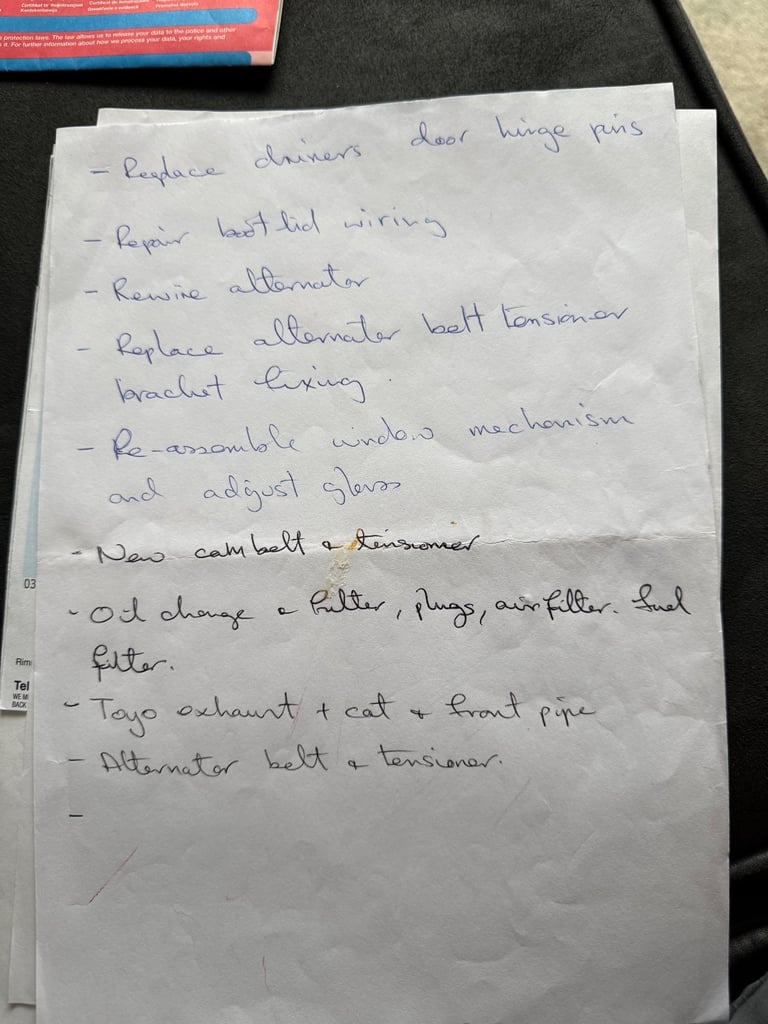 Certificat de înmatriculare
protection laws. The law allows us to release your data to the police and other
it. For further information about how we process your data, your rights and
- Replace drivers door hinge pins
- Repair boot lid wiring
- Rewire alternator
- Replace alternator belt tensioner
bracket fixing.
- Re-assemble window mechanism
and adjust glass
- New cam belt & tensioner
- Oil change & filter, plugs, air filter. fuel
filter.
- Toyo exhaust + cat & front pipe
- Alternator belt & tensioner.
-
03
Rim
Tel
WE MI
BACK